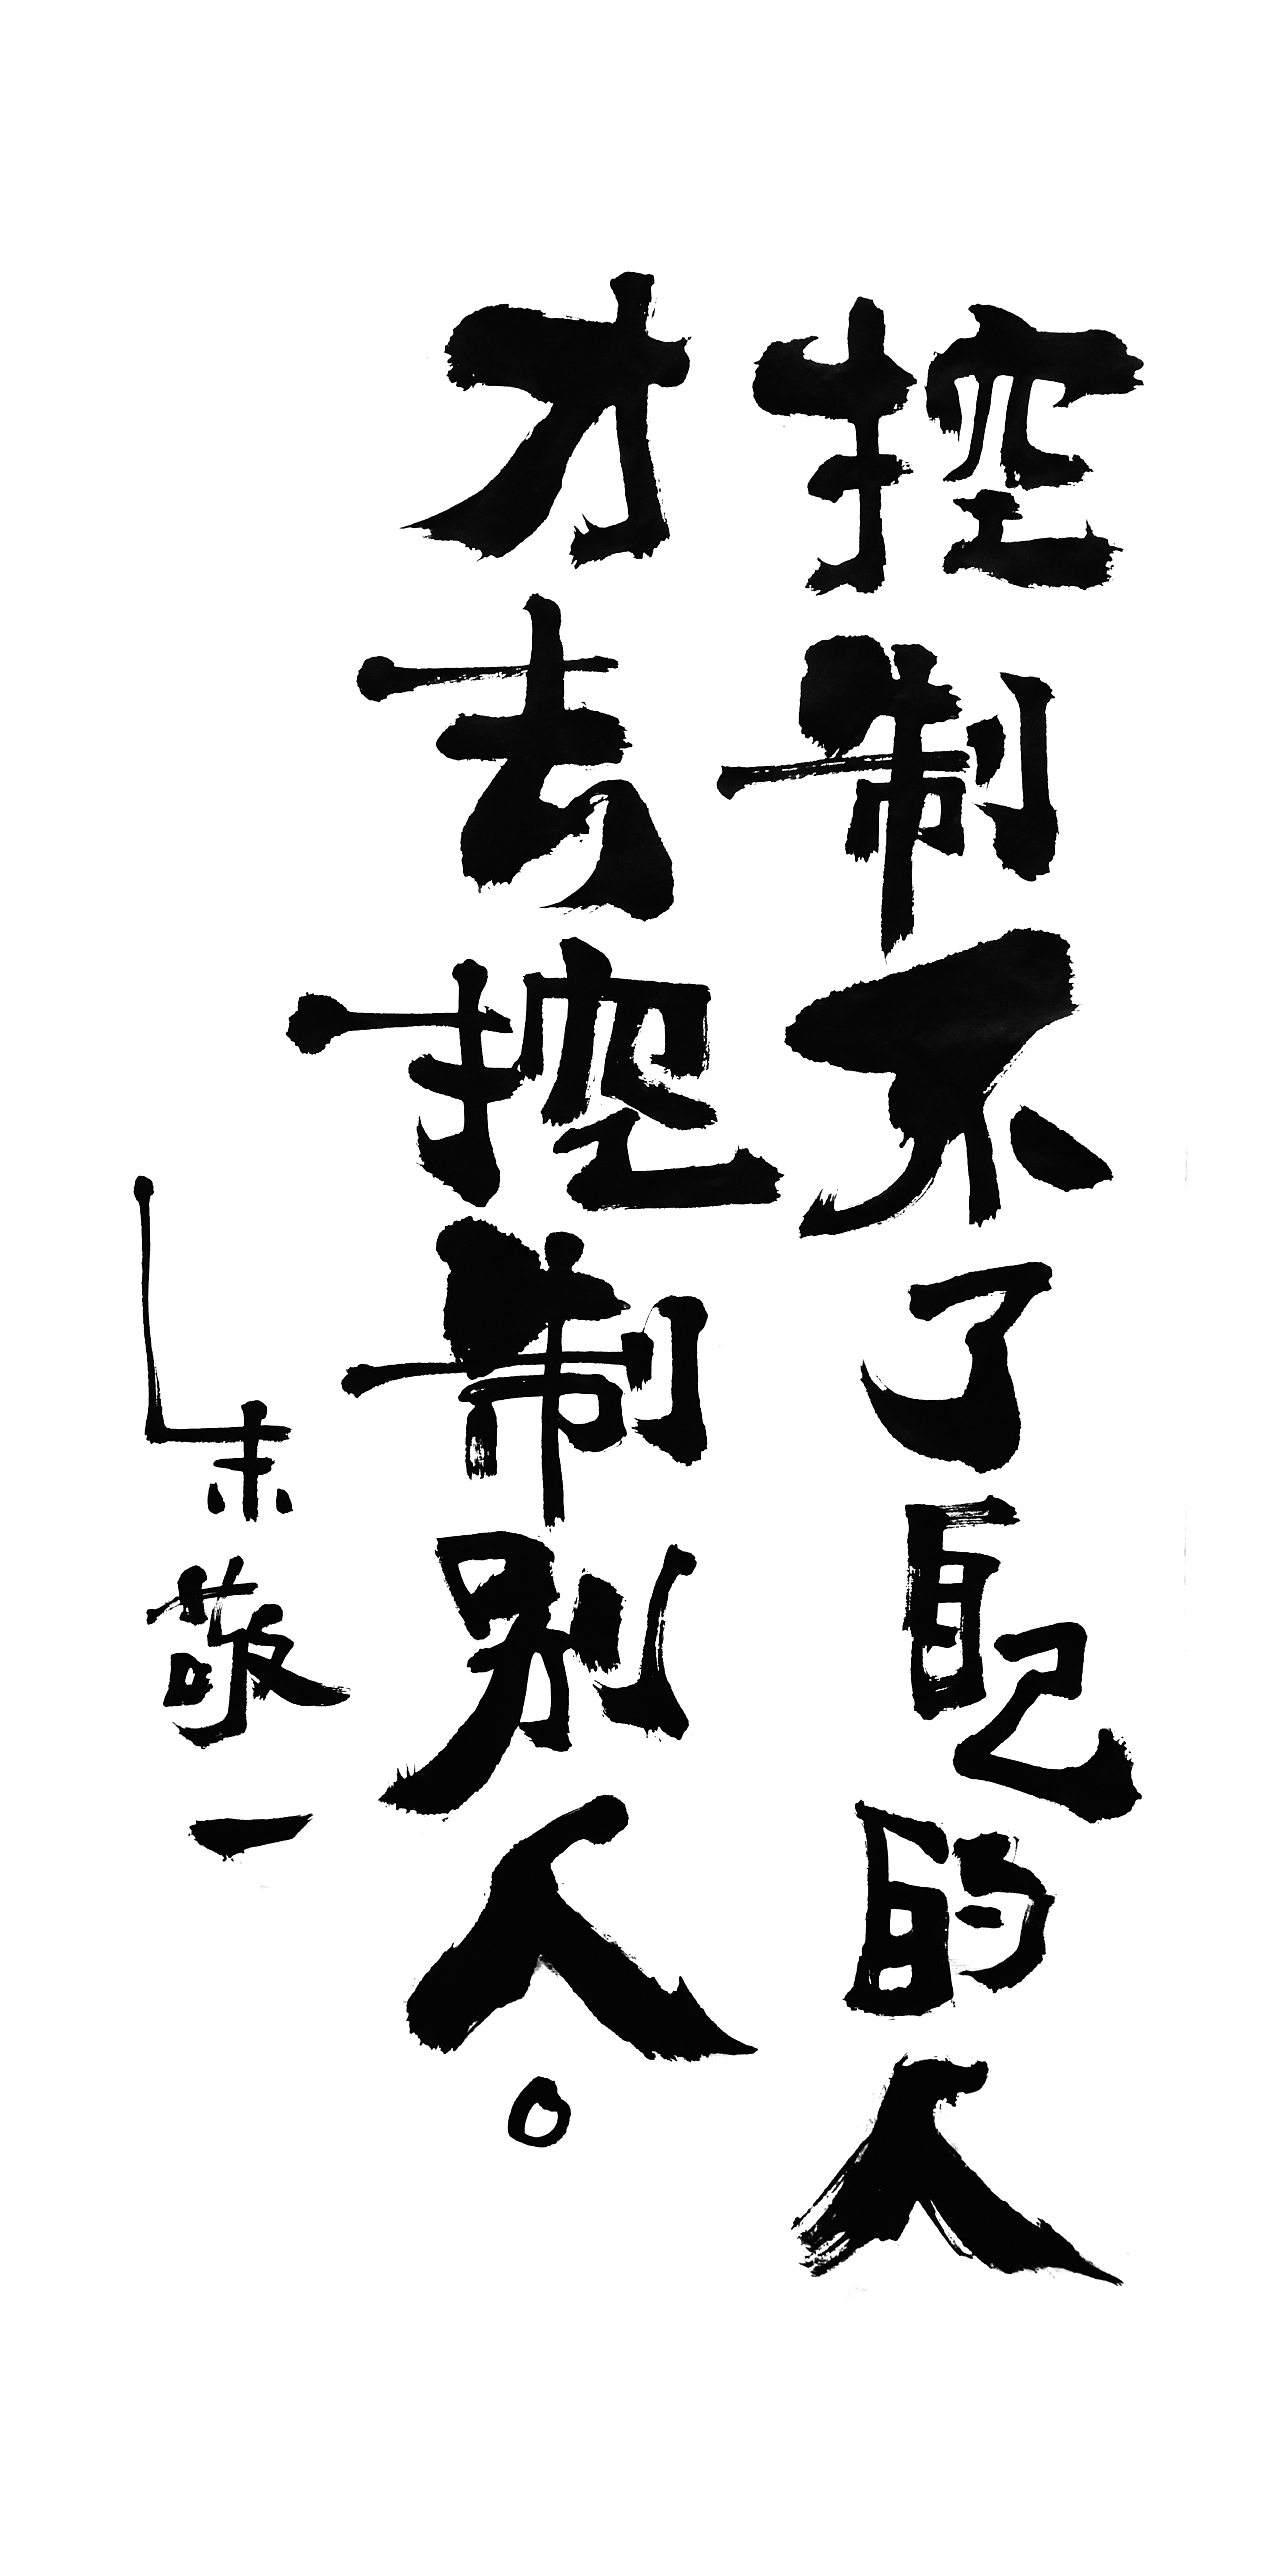 控制不了自己的人
才去控制别人。
朱敬一